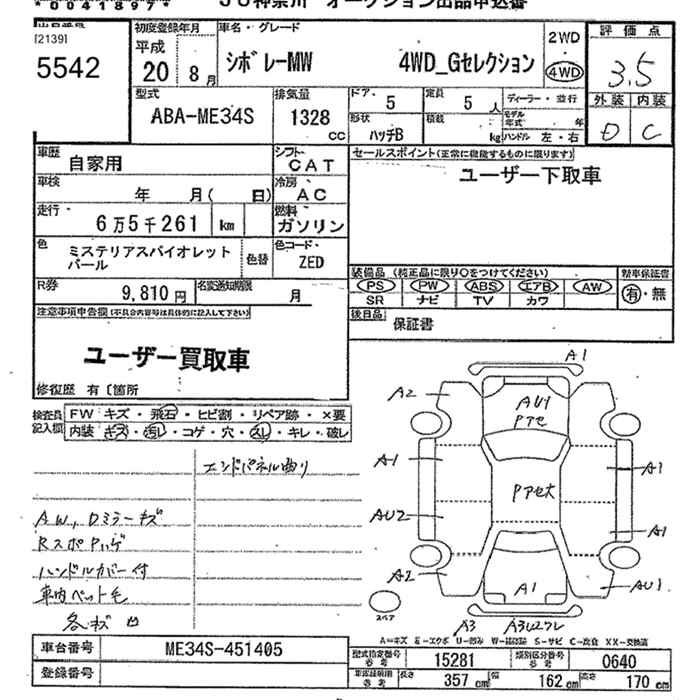 *00418971*
JU神奈川 オークション出品申込書
出品番号
[2139]
5542
初度登録年月
平成
20 8月
車名・グレード
シボレーMW 4WD_Gセレクション
2WD
4WD
評価点
3.5
外装 内装
D C
型式
ABA-ME34S
排気量
1328 CC
ドア・ 5
定員 5 人
形状 ハッチB
積載 kg
ディーラー・並行
モデル年式 年
ハンドル 左・右
車歴 自家用
車検 年 月( 日)
走行・ 6万5千261 km
色 ミステリアスバイオレット
パール
色替
R券 9,810円
名変通知期限 月
シフト・ CAT
冷房 AC
燃料 ガソリン
色コード・ ZED
セールスポイント(正常に機能するものに限ります)
ユーザー下取車
装備品 (純正品に限り○をつけてください)
PS PW ABS エアB AW
SR ナビ TV カワ
新車保証書
有・無
後日品 保証書
注意事項申告欄(不具合内容等は具体的に記入して下さい)
ユーザー買取車
修復歴 有〔箇所
検査員
記入欄
FW キズ・飛石・ヒビ割・リペア跡・×要
内装 キズ・汚レ・コゲ・穴・スレ・キレ・破レ
エンドパネル曲り
AW,Dミラーキズ
RスポPハゲ
ハンドルカバー付
車内ペット毛
各キズ凹
A1
A2
AU1
Pアセ
A1
Pアセ大
A1
AU2
A1
A2
A1
AU1
スペア
A3
A3U2フレ
A=キズ E=エクボ U=凹み W=補修跡 S=サビ C=腐食 XX=交換済
車台番号 ME34S-451405
登録番号
型式指定番号
参考
15281
類別区分番号
参考
0640
車庫証明用
参考
長さ 357 cm
幅 162 cm
高さ 170 cm